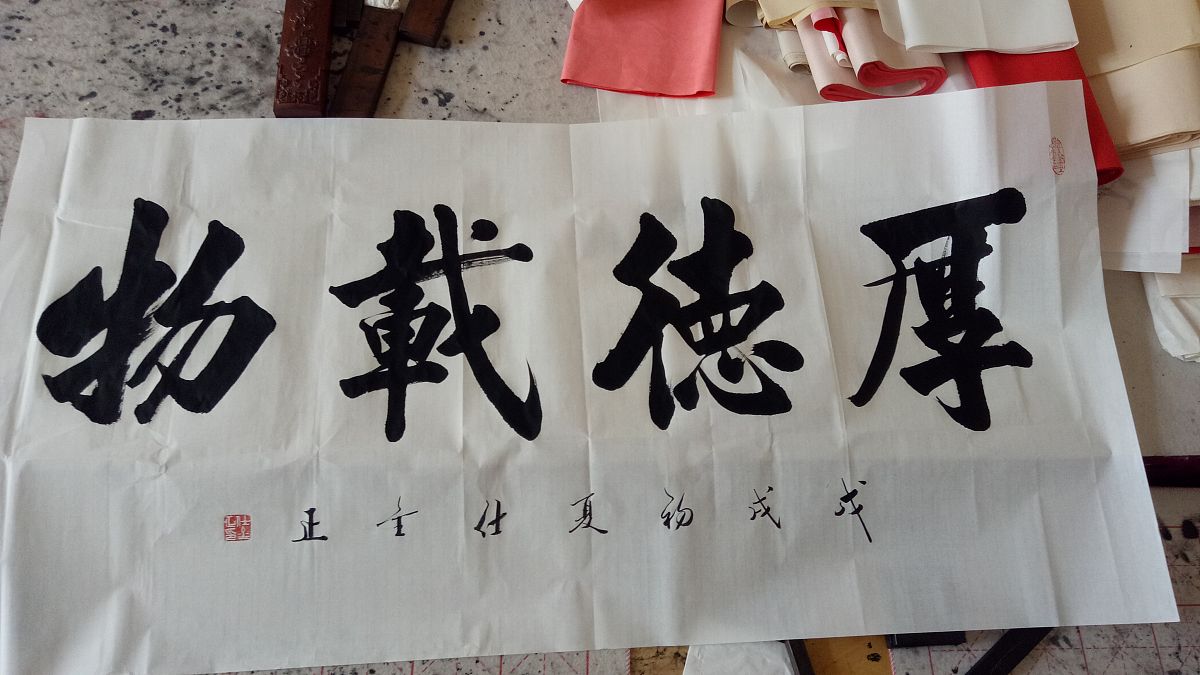 厚德載物
戊戌初夏仕奎正